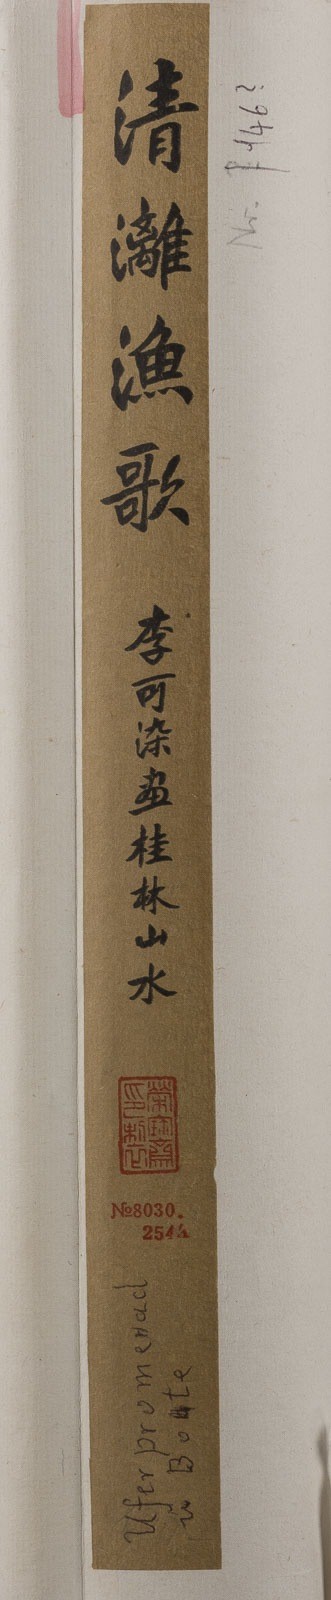 清漓漁歌
李可染画桂林山水
榮寶齋
印製
№8030.
254
Uferpromenad
u Boote
Nr.